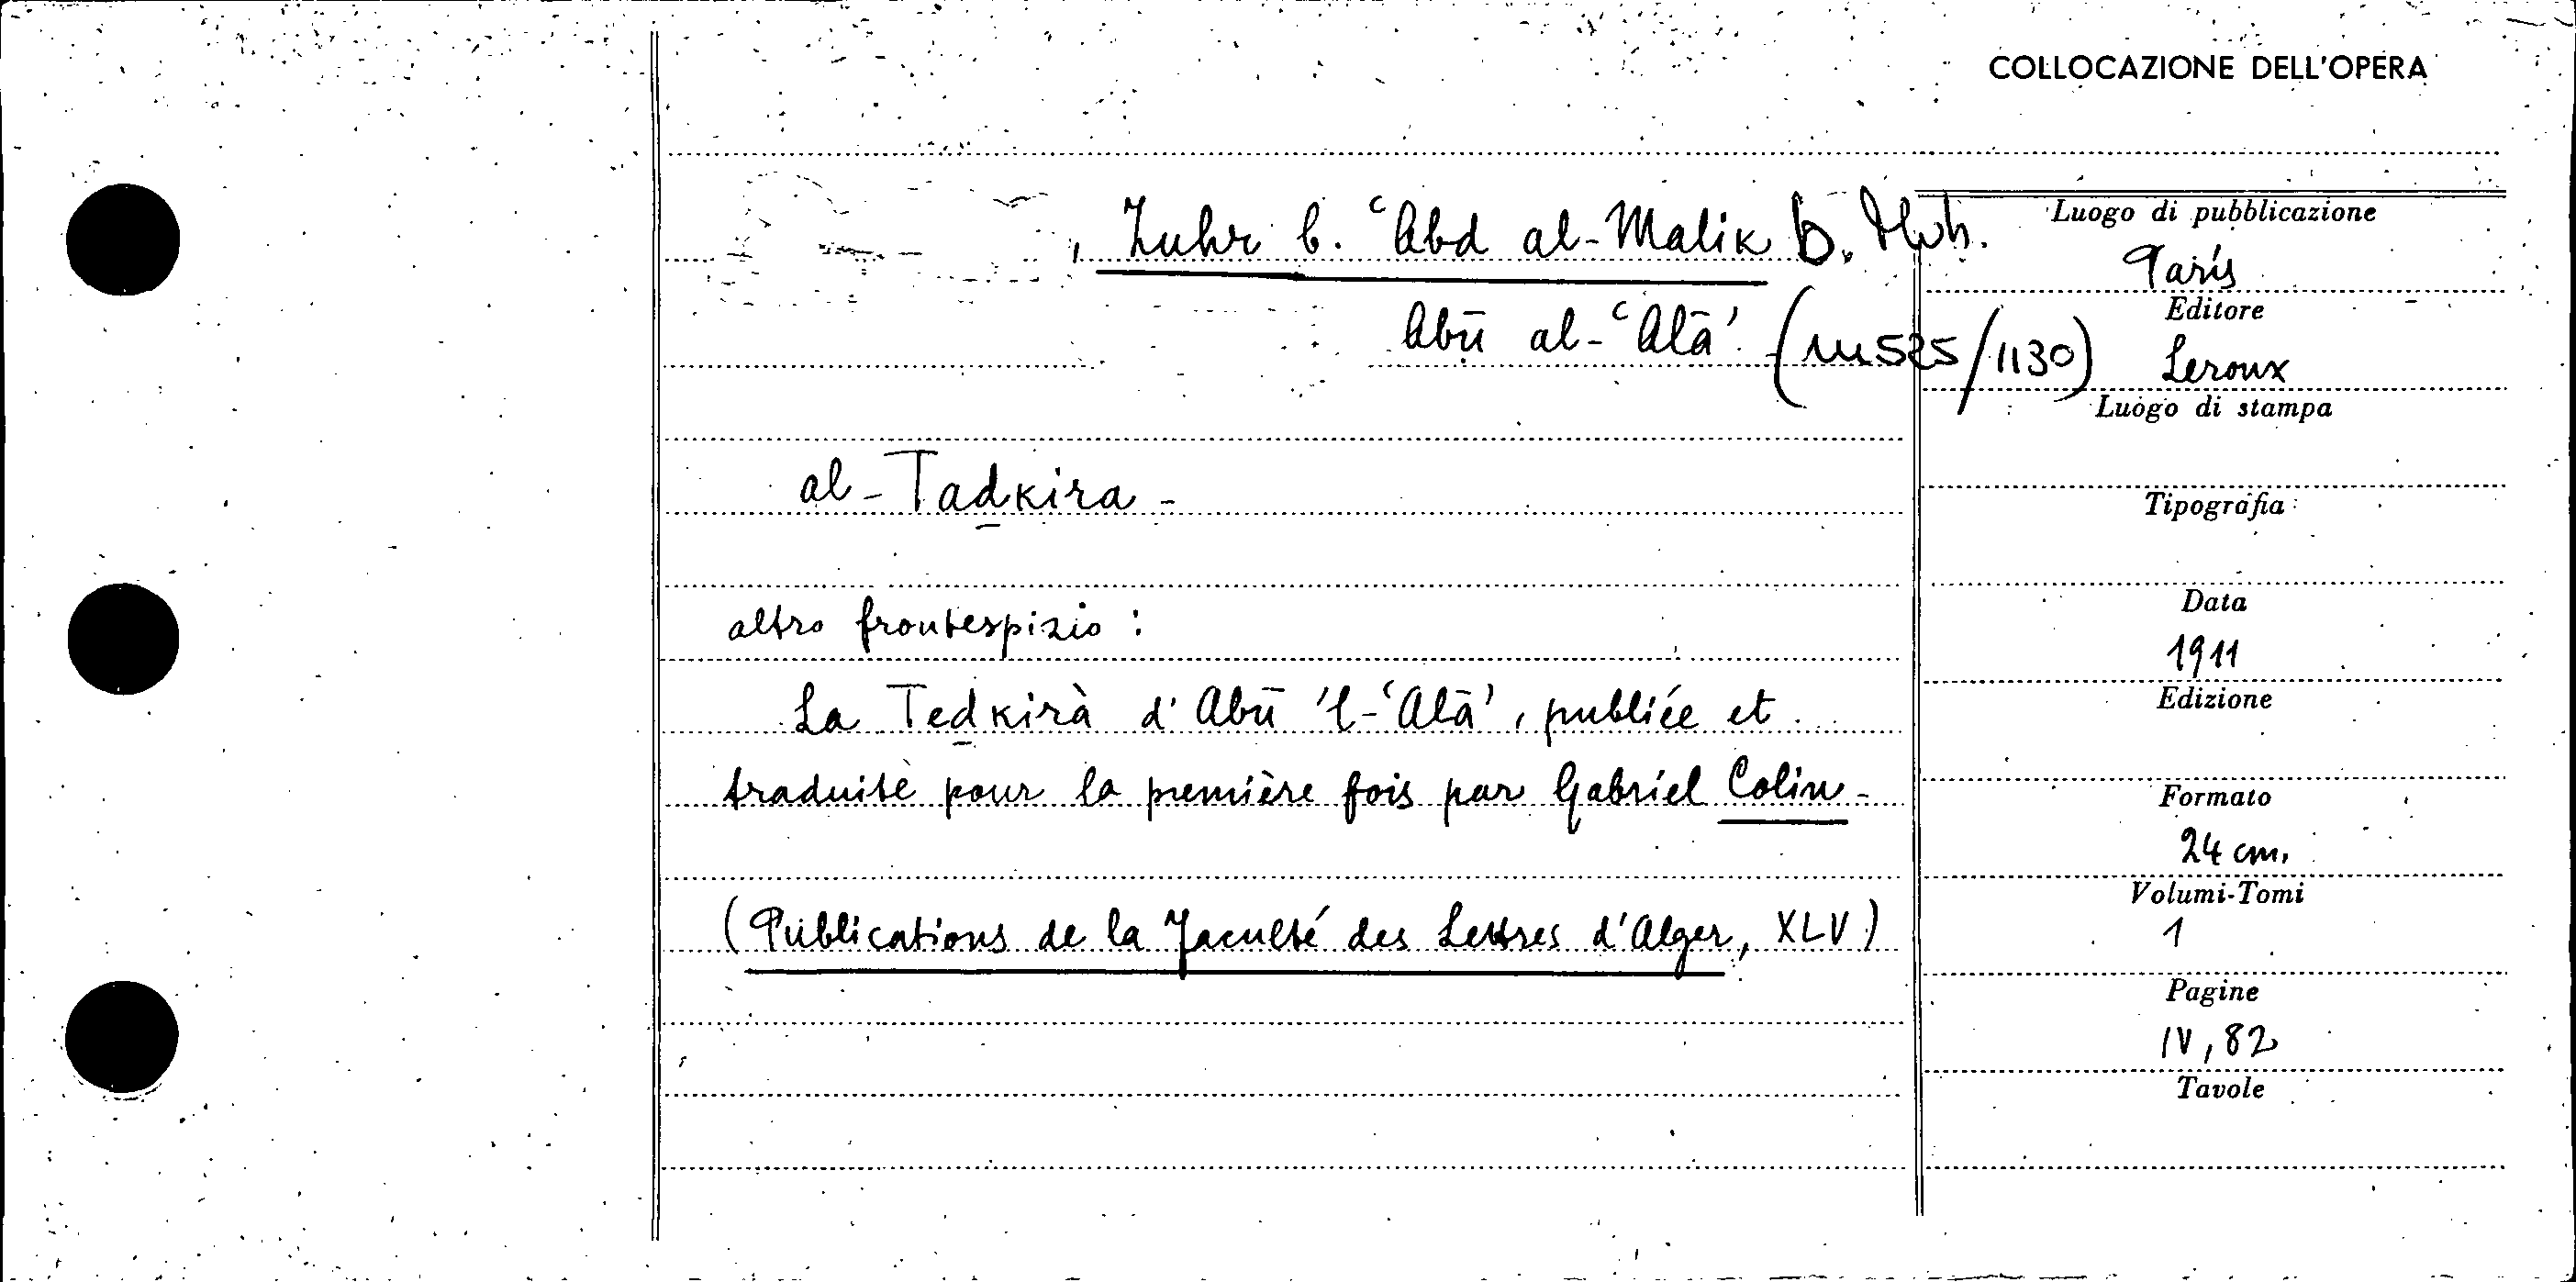 COLLOCAZIONE DELL'OPERA
, Zuhr b. ʿAbd al-Malik b. Muh.
Abū al-ʿAlā' (m 525/1130)
al-Taḏkira -
altro frontespizio :
La Teḏkirà d'Abū 'l-ʿAlā', publiée et
traduite pour la première fois par Gabriel Colin -
(Publications de la Faculté des Lettres d'Alger, XLV)
Luogo di pubblicazione
Paris
Editore
Leroux
Luogo di stampa
Tipografia
Data
1911
Edizione
Formato
24 cm.
Volumi-Tomi
1
Pagine
IV, 82
Tavole